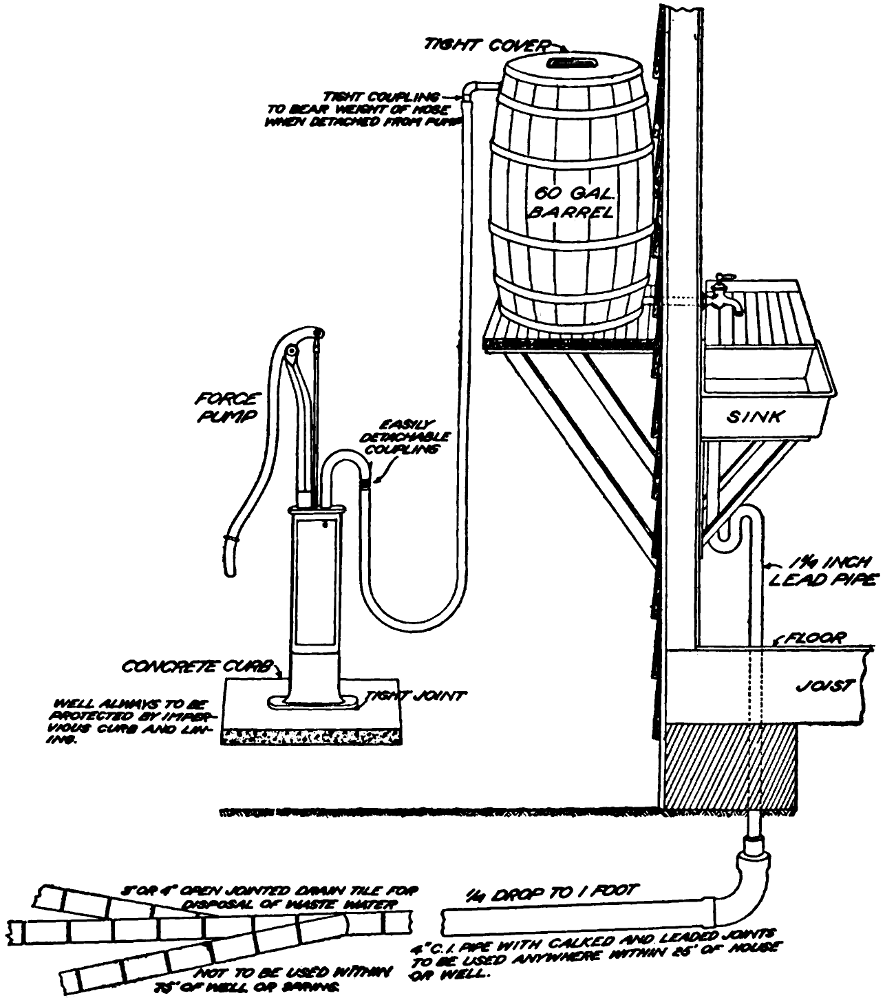 TIGHT COVER
TIGHT COUPLING
TO BEAR WEIGHT OF HOSE
WHEN DETACHED FROM PUMP
60 GAL.
BARREL
FORCE
PUMP
EASILY
DETACHABLE
COUPLING
SINK
1¼ INCH
LEAD PIPE
FLOOR
JOIST
CONCRETE CURB
TIGHT JOINT
WELL ALWAYS TO BE
PROTECTED BY IMPER-
VIOUS CURB AND LIN-
ING.
3" OR 4" OPEN JOINTED DRAIN TILE FOR
DISPOSAL OF WASTE WATER
¼ DROP TO 1 FOOT
4" C.I. PIPE WITH CALKED AND LEADED JOINTS
TO BE USED ANYWHERE WITHIN 25' OF HOUSE
OR WELL.
NOT TO BE USED WITHIN
75' OF WELL OR SPRING.